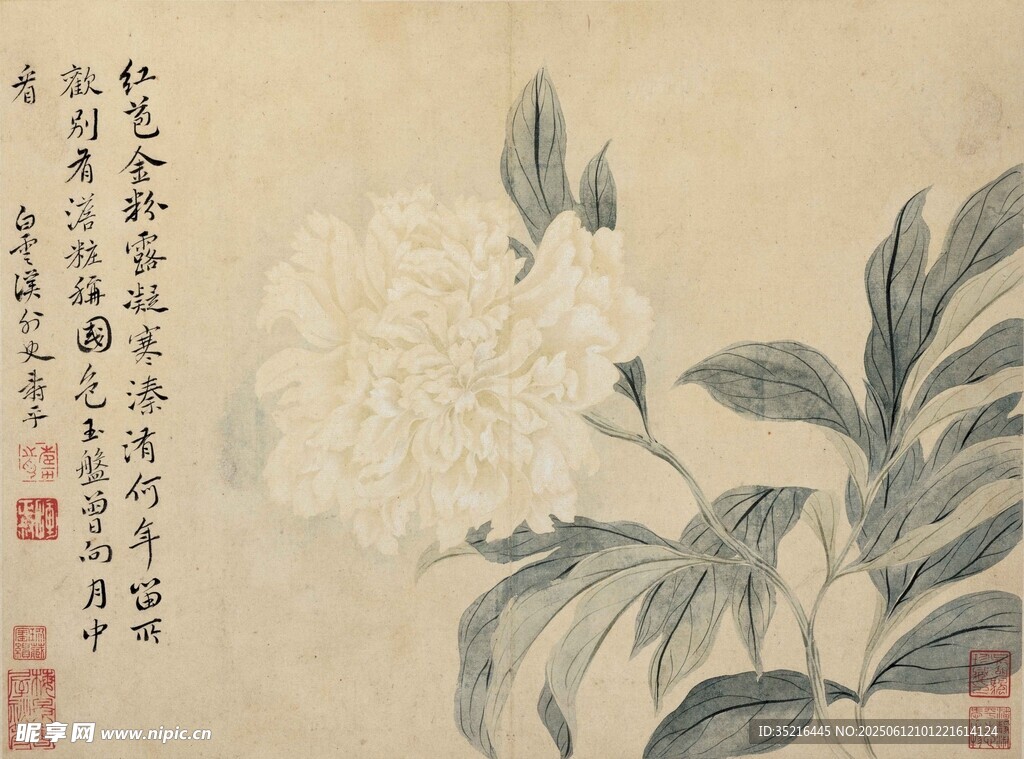 红苞金粉露凝寒溱洧何年留所
歡别有澹粧稱國色玉盤曾向月中
看
白雲溪外史壽平
昵享网 www.nipic.cn
ID:35216445 NO:20250612101221614124